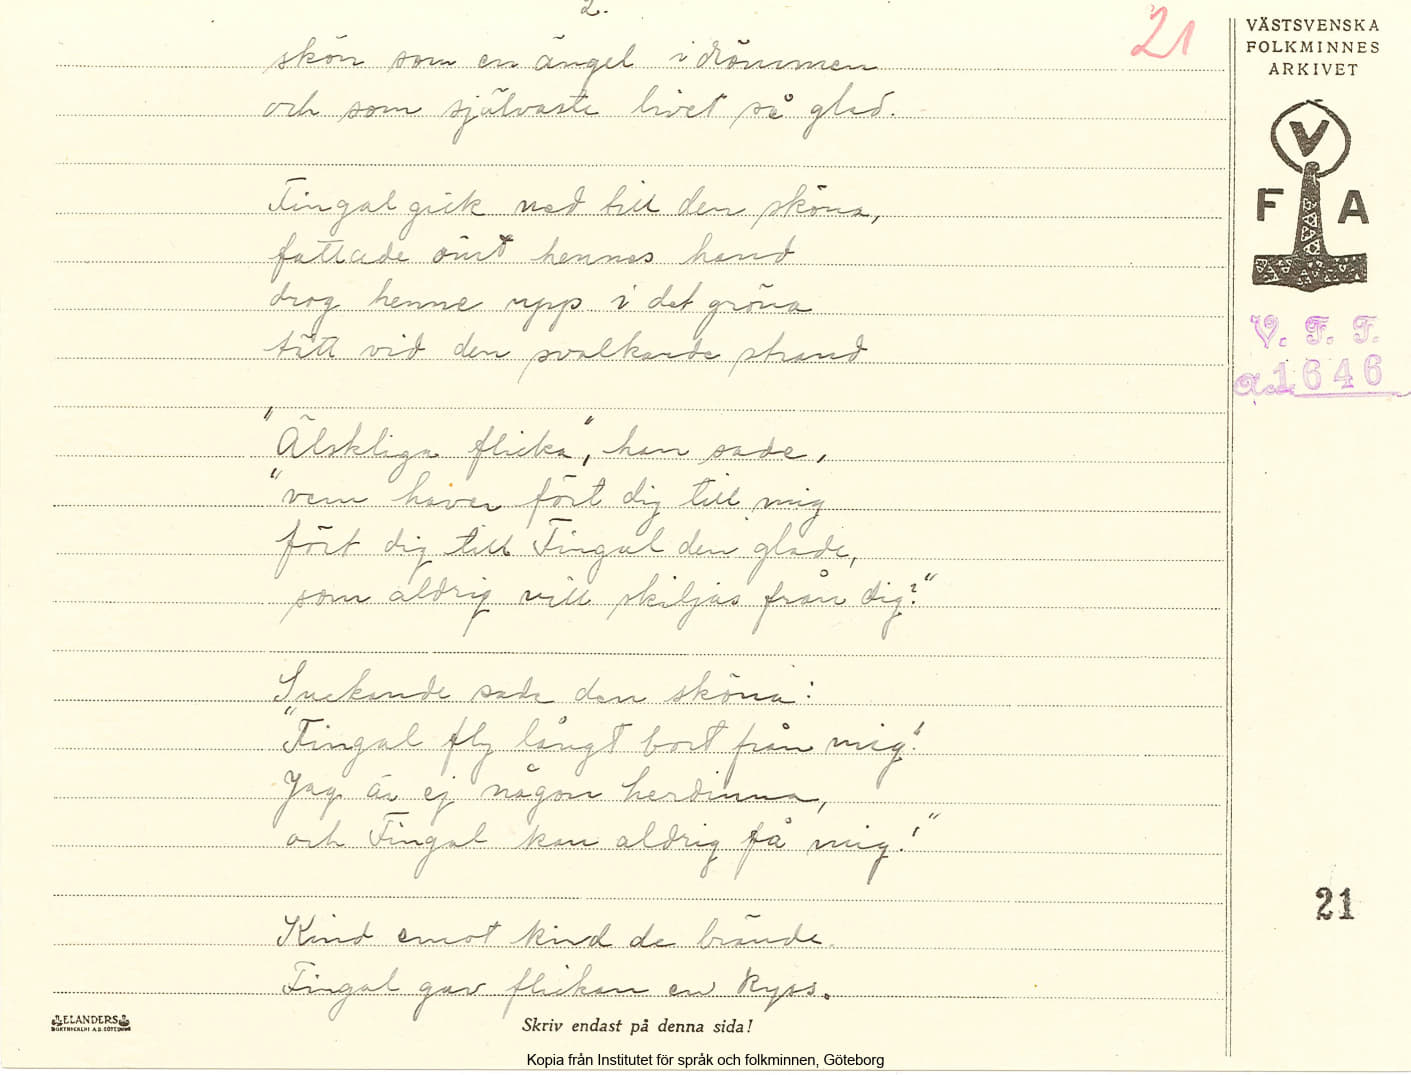 2.
21
skön som en ängel i drömmen
och som självaste livet så glad.
Fingal gick ned till den sköna,
fattade ömt hennes hand
drog henne upp i det gröna
tätt vid den svalkande strand
"Älskliga flicka", han sade,
"vem haver fört dig till mig
fört dig till Fingal den glade,
som aldrig vill skiljas från dig?"
Suckande sade den sköna:
"Fingal fly långt bort från mig!
Jag är ej någon herdinna,
och Fingal kan aldrig få mig!"
Kind emot kind de brände.
Fingal gav flickan en kyss.
VÄSTSVENSKA
FOLKMINNES
ARKIVET
V
F A
V. F. F.
a. 1646
21
ELANDERS
Skriv endast på denna sida!
Kopia från Institutet för språk och folkminnen, Göteborg